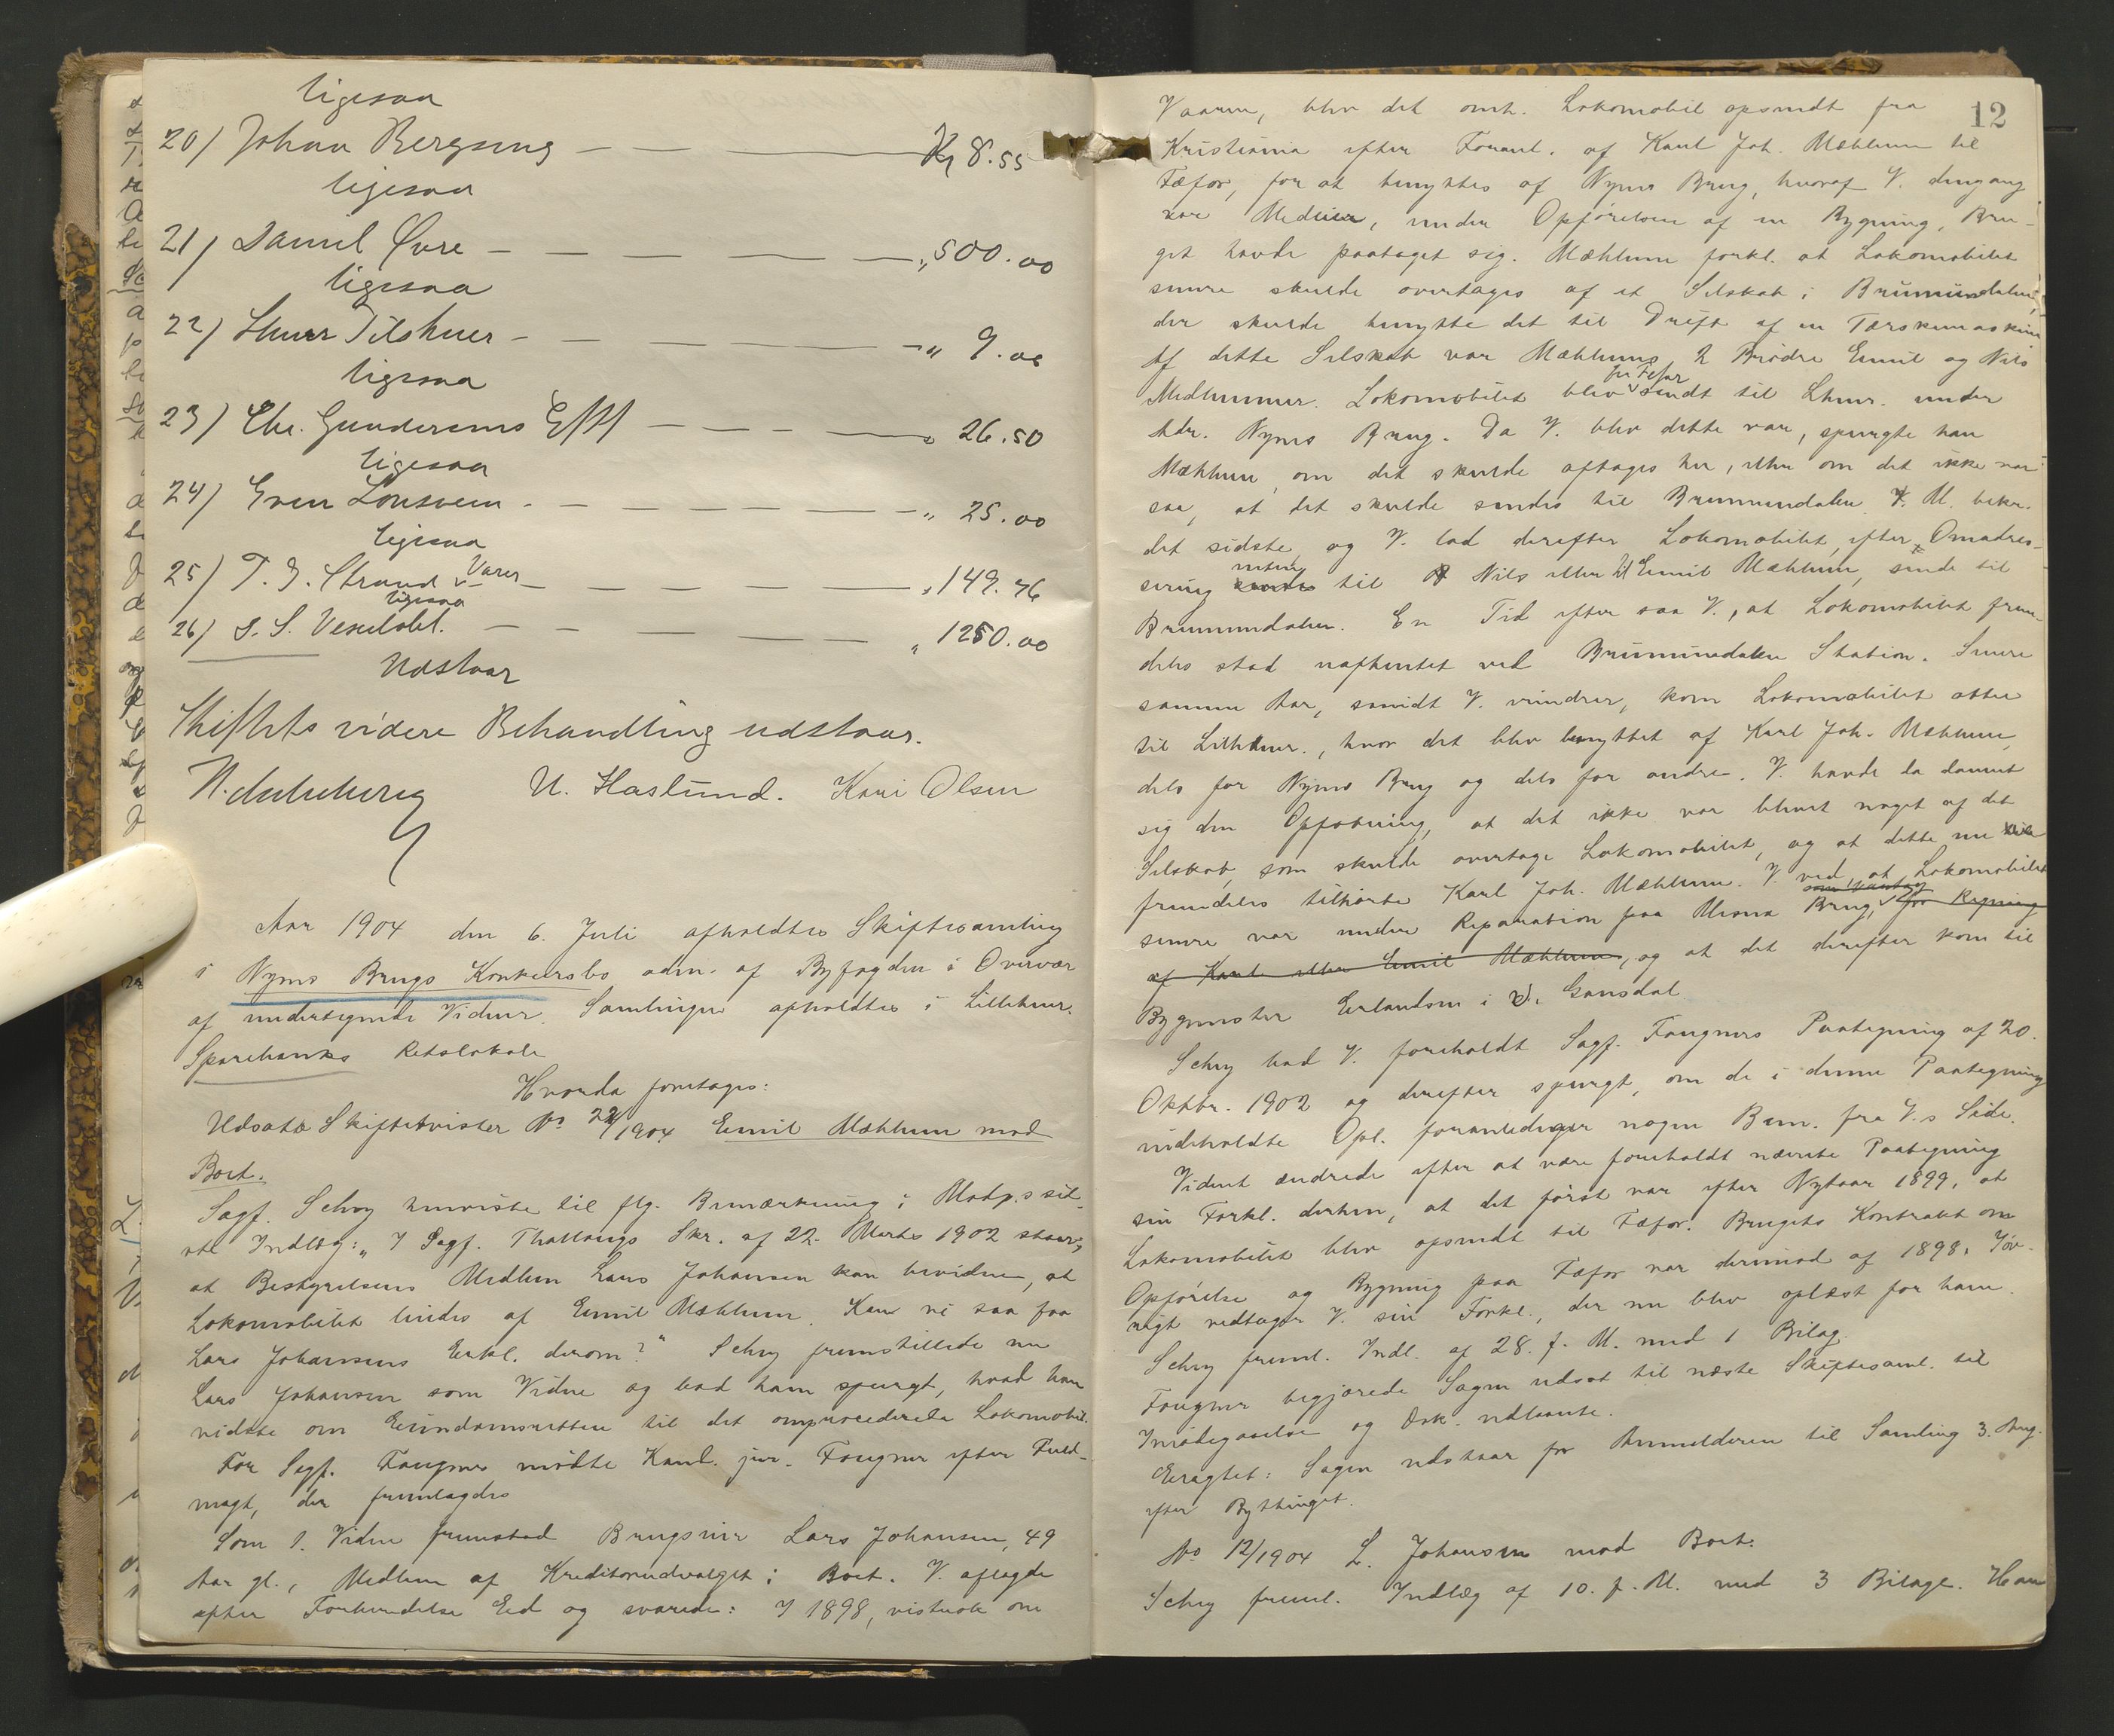 ligesaa
20/ Johan Bergseng — — — Kr 8.55
ligesaa
21/ Daniel Øvre — — — — „ 500.00
ligesaa
22/ Lhmrs Tilskuer — — — — „ 9.00
ligesaa
23/ Chr. Gundersens Eftf — — — „ 26.50
ligesaa
24/ Even Lønsveen — — — — „ 25.00
ligesaa
25/ T. G. Strand Varer — — — „ 149.76
ligesaa
26/ S. S. Vexelobl. — — — — „ 1250.00
Udstaar
Skiftets videre Behandling udstaar.
U. Haslund. Kari Olsen
Aar 1904 den 6. Juli afholdtes Skiftesamling
i Nymo Brugs Konkursbo adm. af Byfogden i Overvær
af undertegnede Vidner. Samlingen afholdtes i Lillehmr.
Sparebanks Retslokale
Hvorda foretages:
Udsatte Skiftetvister No 22/1904 Emil Mæhlum mod
Boet.
Sagf. Schey henviste til flg. Bemærkning i Modp.s sid-
ste Indlæg: „I Sagf. Thallaugs Skr. af 22. Marts 1902 staar,
at Bestyrelsens Medlem Lars Johansen kan bevidne, at
Lokomobilet eiedes af Emil Mæhlum. Kan vi saa faa
Lars Johansens Erkl. derom?" Schey fremstillede nu
Lars Johansen som Vidne og bad ham spurgt, hvad han
vidste om Eiendomsretten til det omprocederede Lokomobil.
For Sagf. Fougner mødte Kand. jur. Fougner efter Fuld-
magt, der fremlagdes
Som 1. Vidne fremstod Brugseier Lars Johansen, 49
Aar gl., Medlem af Kreditorudvalget i Boet. V. aflagde
efter Forberedelse Ed og svarede: I 1898, vistnok om
12
Vaaren, blev det omh. Lokomobil opsendt fra
Kristiania efter Foranl. af Karl Joh. Mæhlum til
Fæfor, for at benyttes af Nymo Brug, hvoraf V. dengang
var Medeier, under Opførelsen af en Bygning, Bru-
get havde paataget sig. Mæhlum forkl. at Lokomobilet
senere skulde overtages af et Selskab i Brumunddalen,
der skulde benytte det til Drift af en Tærskemaskine
Af dette Selskab var Mæhlums 2 Brødre Emil og Nils
Medlemmer. Lokomobilet blev fra Fefor sendt til Lhmr. under
Adr. Nymo Brug. Da V. blev dette var, spurgte han
Mæhlum, om det skulde aftages her, eller om det ikke var
saa, at det skulde sendes til Brumunddalen. K. M. bekr.
det sidste, og V. lod derefter Lokomobilet, efter Omadres-
sering enten til Nils eller til Emil Mæhlum, sende til
Brumunddalen. En Tid efter saa V., at Lokomobilet frem-
deles stod uafhentet ved Brumunddalen Station. Senere
samme Aar, saavidt V. erindrer, kom Lokomobilet atter
til Lillehmr., hvor det blev benyttet af Karl Joh. Mæhlum,
dels for Nymo Brug og dels for andre. V. havde da dannet
sig den Opfatning, at det ikke var blevet noget af det
Selskab, som skulde overtage Lokomobilet, og at dette nu
fremdeles tilhørte Karl Joh. Mæhlum. V. ved, at Lokomobilet
senere var under Reparation paa Mesna Brug, for Regning
af Karl eller Emil Mæhlum, og at det derefter kom til
Bygmester Erlandsen i Ø. Gausdal.
Schey bad V. foreholdt Sagf. Fougners Paategning af 20.
Oktbr. 1902 og derefter spurgt, om de i denne Paategning
indeholdte Opl. foranlediger nogen Bem. fra V.s Side.
Vidnet ændrede efter at være foreholdt nævnte Paategning
sin Forkl. derhen, at det først var efter Nytaar 1899, at
Lokomobilet blev opsendt til Fæfor. Brugets Kontrakt om
Opførelse og Bygning paa Fæfor var derimod af 1898. Iøv-
rigt vedtager V. sin Forkl., der nu blev oplæst for ham.
Schey freml. Indl. af 28. f. M. med 1 Bilag.
Fougner begjærede Sagen udsat til næste Skiftesaml. til
Imødegaaelse og Dok. vedtoges.
Eragtet: Sagen udstaar for Anmelderen til Samling 3. Aug.
efter Bythinget.
No 12/1904 L. Johansen mod Boet.
Schey freml. Indlæg af 10. f. M. med 3 Bilage. Han